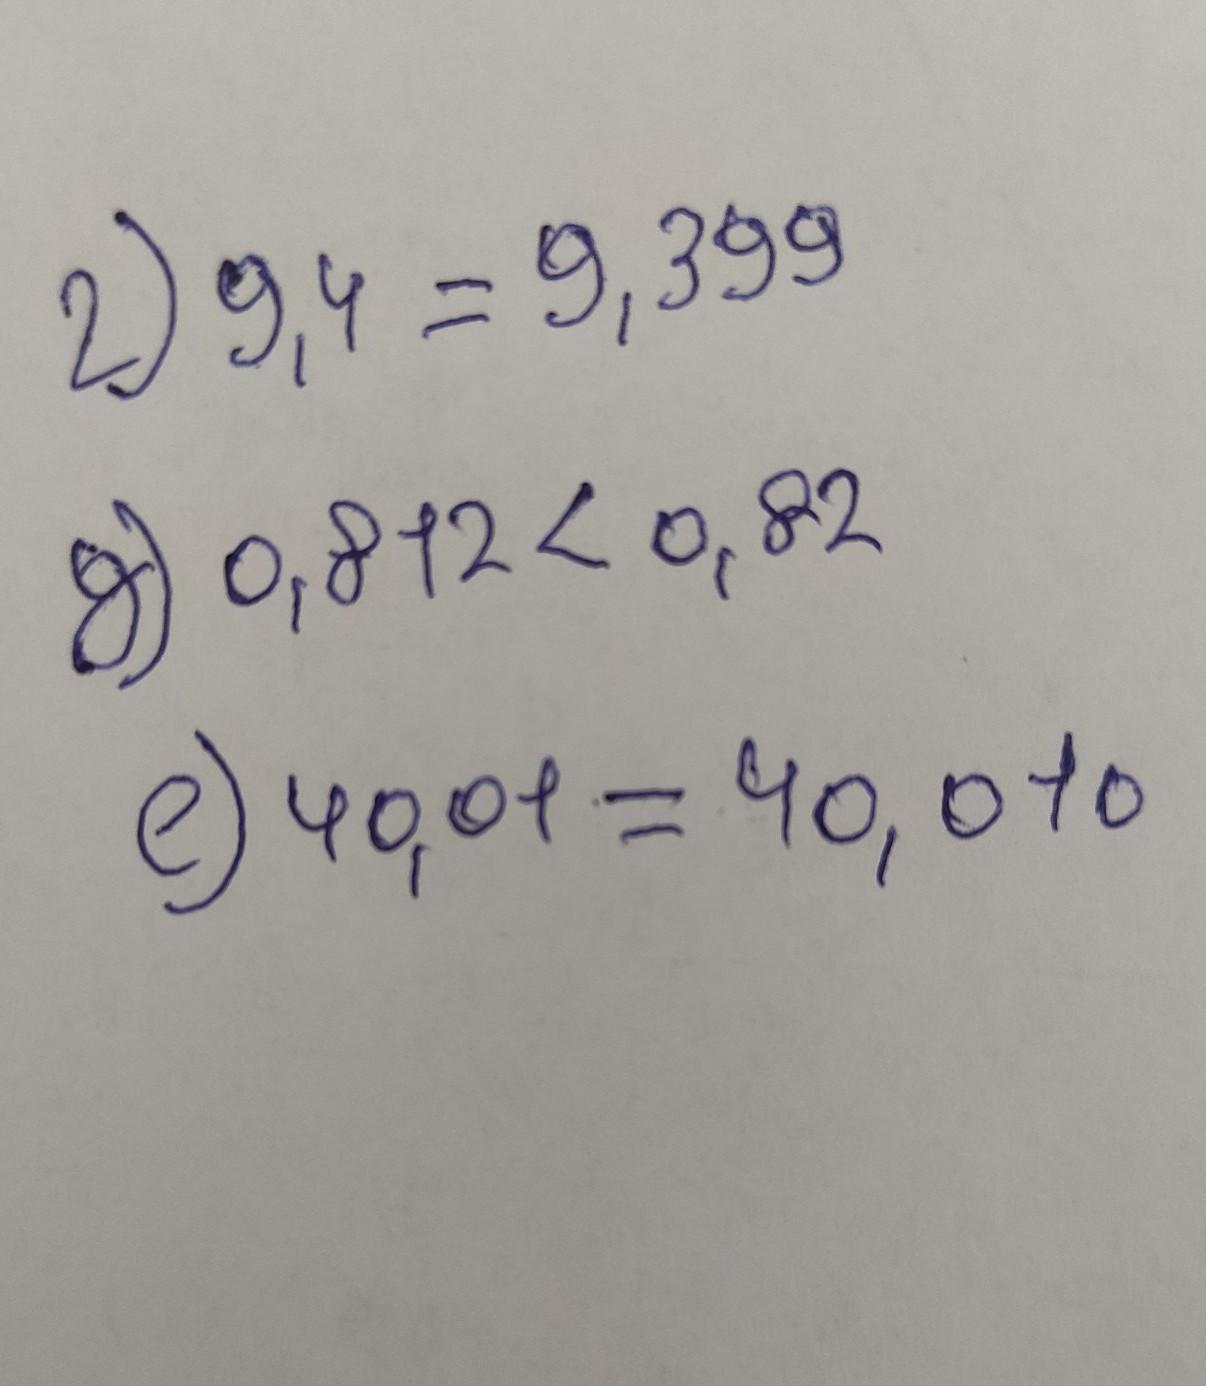 г) 9,4 = 9,399
д) 0,812 < 0,82
е) 40,01 = 40,010